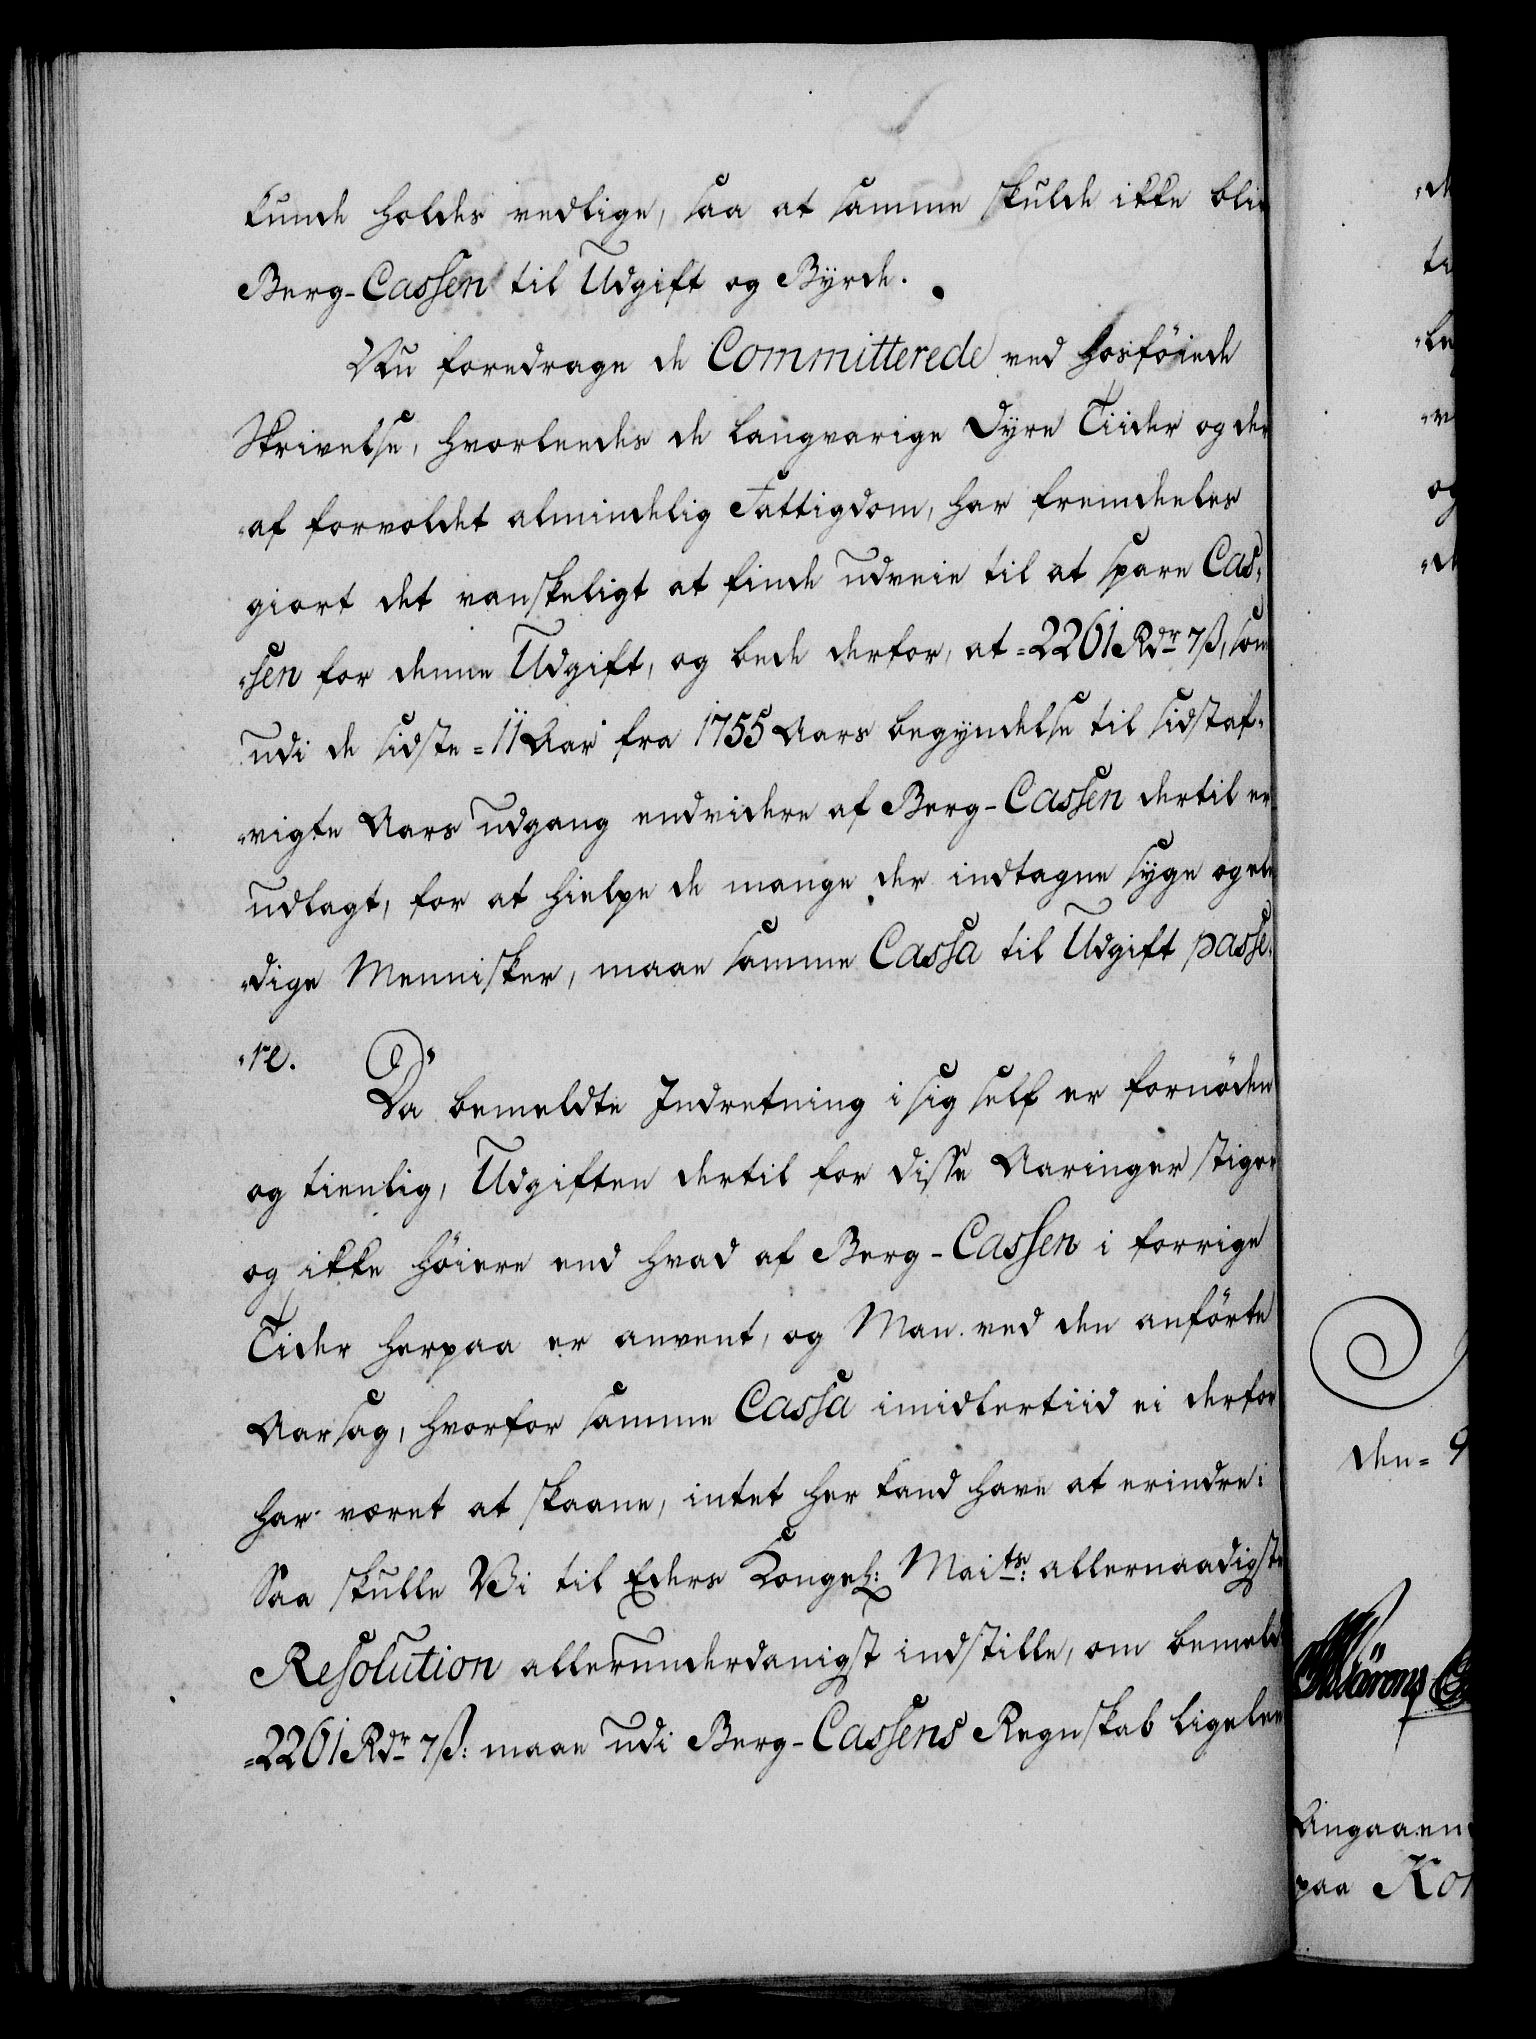 kunde holdes vedlige, saa at samme skulde ikke bli
Berg-Cassen til Udgift og Byrde.
Nu foredrage de Committerede ved hosföiede
Skrivelse, hvorleedes de langvarige Dyre Tiider og der
af forvoldet almindelig Fattigdom, har fremdeeles
giort det vanskeligt at finde udveie til at spare Cas-
sen for denne Udgift, og bede derfor, at =2261 Rdr 7 ß, som
udi de sidste =11 Aar fra 1755 Aars begyndelse til sidstaf-
vigte Aars udgang endvidere af Berg-Cassen dertil er
udlagt, for at hielpe de mange der indtagne syge og ele
dige Mennisker, maae samme Cassa til Udgift passe-
re.
Da bemeldte Indretning i sig self er fornöden
og tienlig, Udgiften dertil for disse Aaringer stiger
og ikke höiere end hvad af Berg-Cassen i forrige
Tider herpaa er anvent, og Man ved den anförte
Aarsag, hvorfor samme Cassa imidlertiid ei derfor
har været at skaane, intet her kand have at erindre:
Saa skulle Vi til Eders Kongel: Maits: allernaadigste
Resolution allerunderdanigst indstille, om bemeld
=2261 Rdr 7 ß: maae udi Berg-Cassens Regnskab ligelee
den= 9
Angaaen
paa Kon